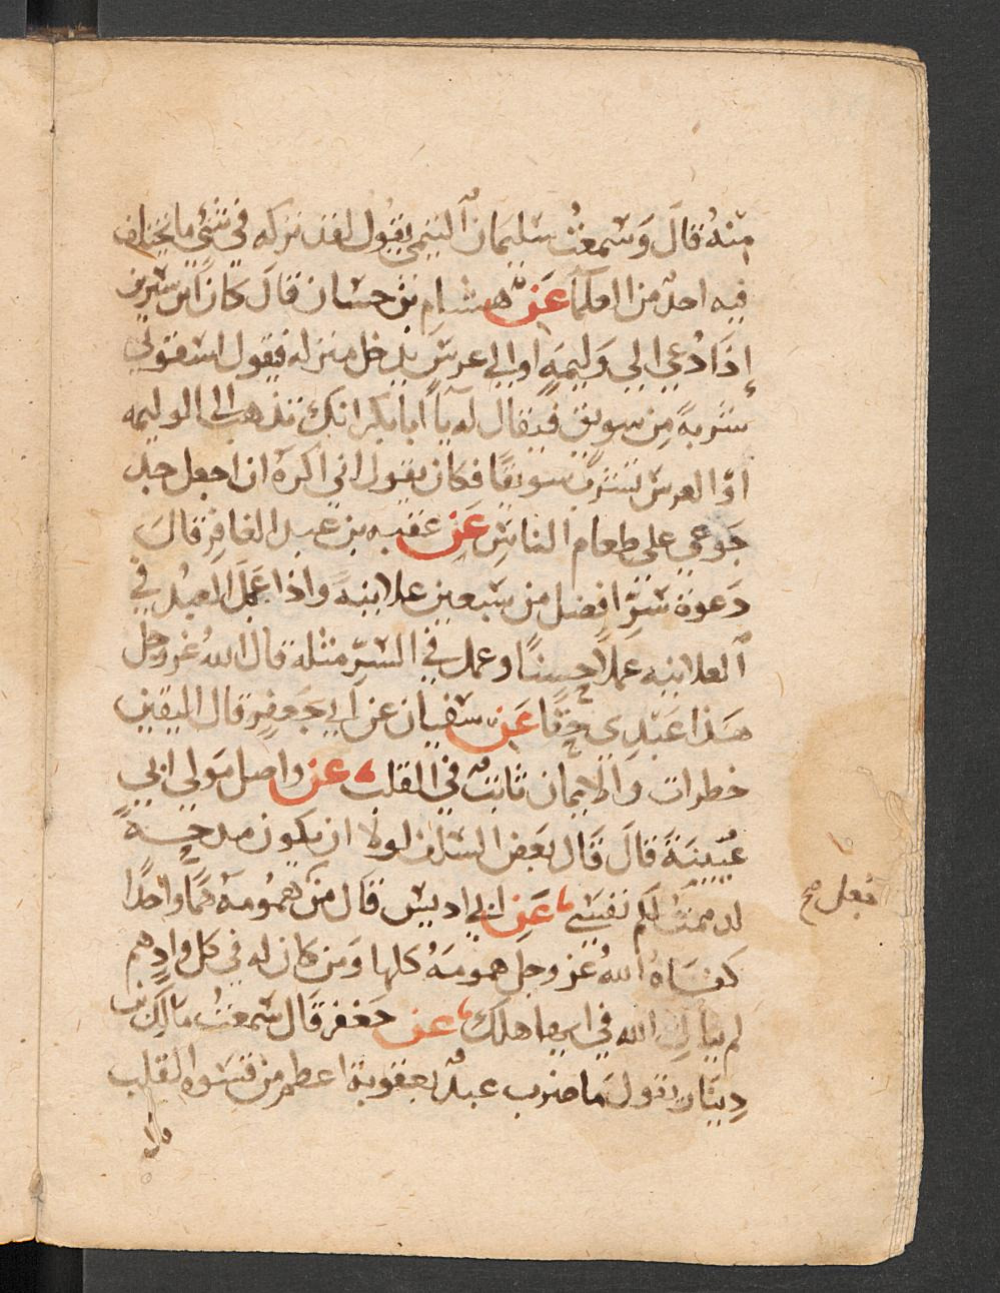 منهُ قالَ وَسَمعتُ سليمَان اَلتيمي يقول لقد تركه في شئ ما يختلف
فيه احدٌ من العلمآ عَن هشامِ بن حسان قال كان اَبن سيرين
إذَا دُعي الي وَليمَةٍ او الي عرسٍ يدخل منزله فيقول اسقوني
شَربةً مِن سويق فيقال له ياَ ابا بكر انك تذهب الي الوليمه
اوَ العرس تشرَبُ سويقًا فكان يقول اني اكرهُ ان اجعل جل
جَوعي على طعام الناسِ عَن عقبه بن عبد الغافِر قالَ
دَعوة سرٍّ افضل من سَبعين علانيَةً واذا عَمَل العبدُ في
اَلعلانيه عملاً حسنًا وعمل في السِّرّ مثله قال اللهُ عز وجل
هَذا عَبْدِي حَقًا عَن سفيان عن ابي جَعفرٍ قال اليقين
خطرات والايمان ثابتٌ في القلب عن واصل مَولي ابي
عُيينَةَ قالَ قَال بعَض السَّلف لولا ان يكون مدحَةً
لذممتُ لكم نفسي عَن ابي ادريس قال من جعل همُومَهُ هَمًّا واحدًا
كفَاهُ اللهُ عز وجل همومَهُ كلها وَمن كان له في كل وادٍ هم
لم يبالِ الله في ايها هلك عن جَعفر قَال سَمعتُ مَالِك بن
دِينَار يقول مَا ضرب عبدٌ بعقوبة اعظم من قسَوة القلب
فعل صح